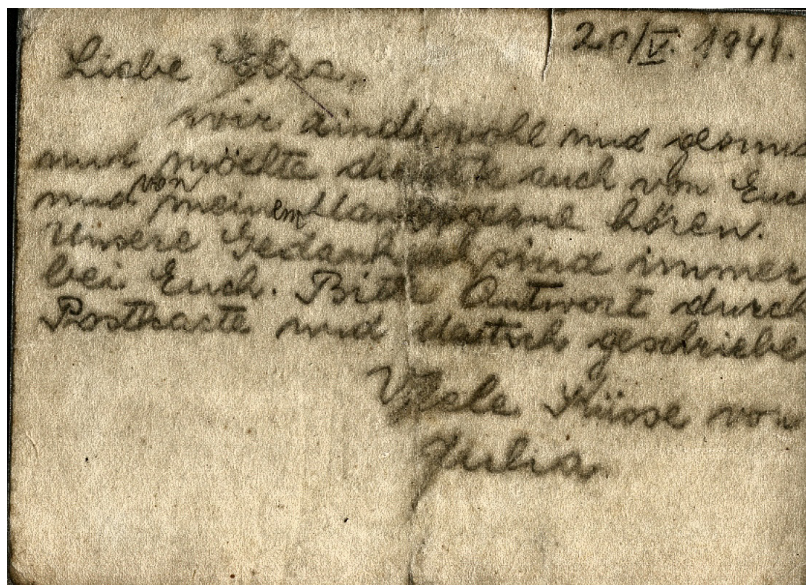 20/V. 1944.
Liebe Elza,
wir sind wohl und gesund
und möchte auch von Euch
und von meinem Mann gerne hören.
Unsere Gedanken sind immer
bei Euch. Bitte Antwort durch
Postkarte und deutsch geschrieben
Viele Küsse von
Julia